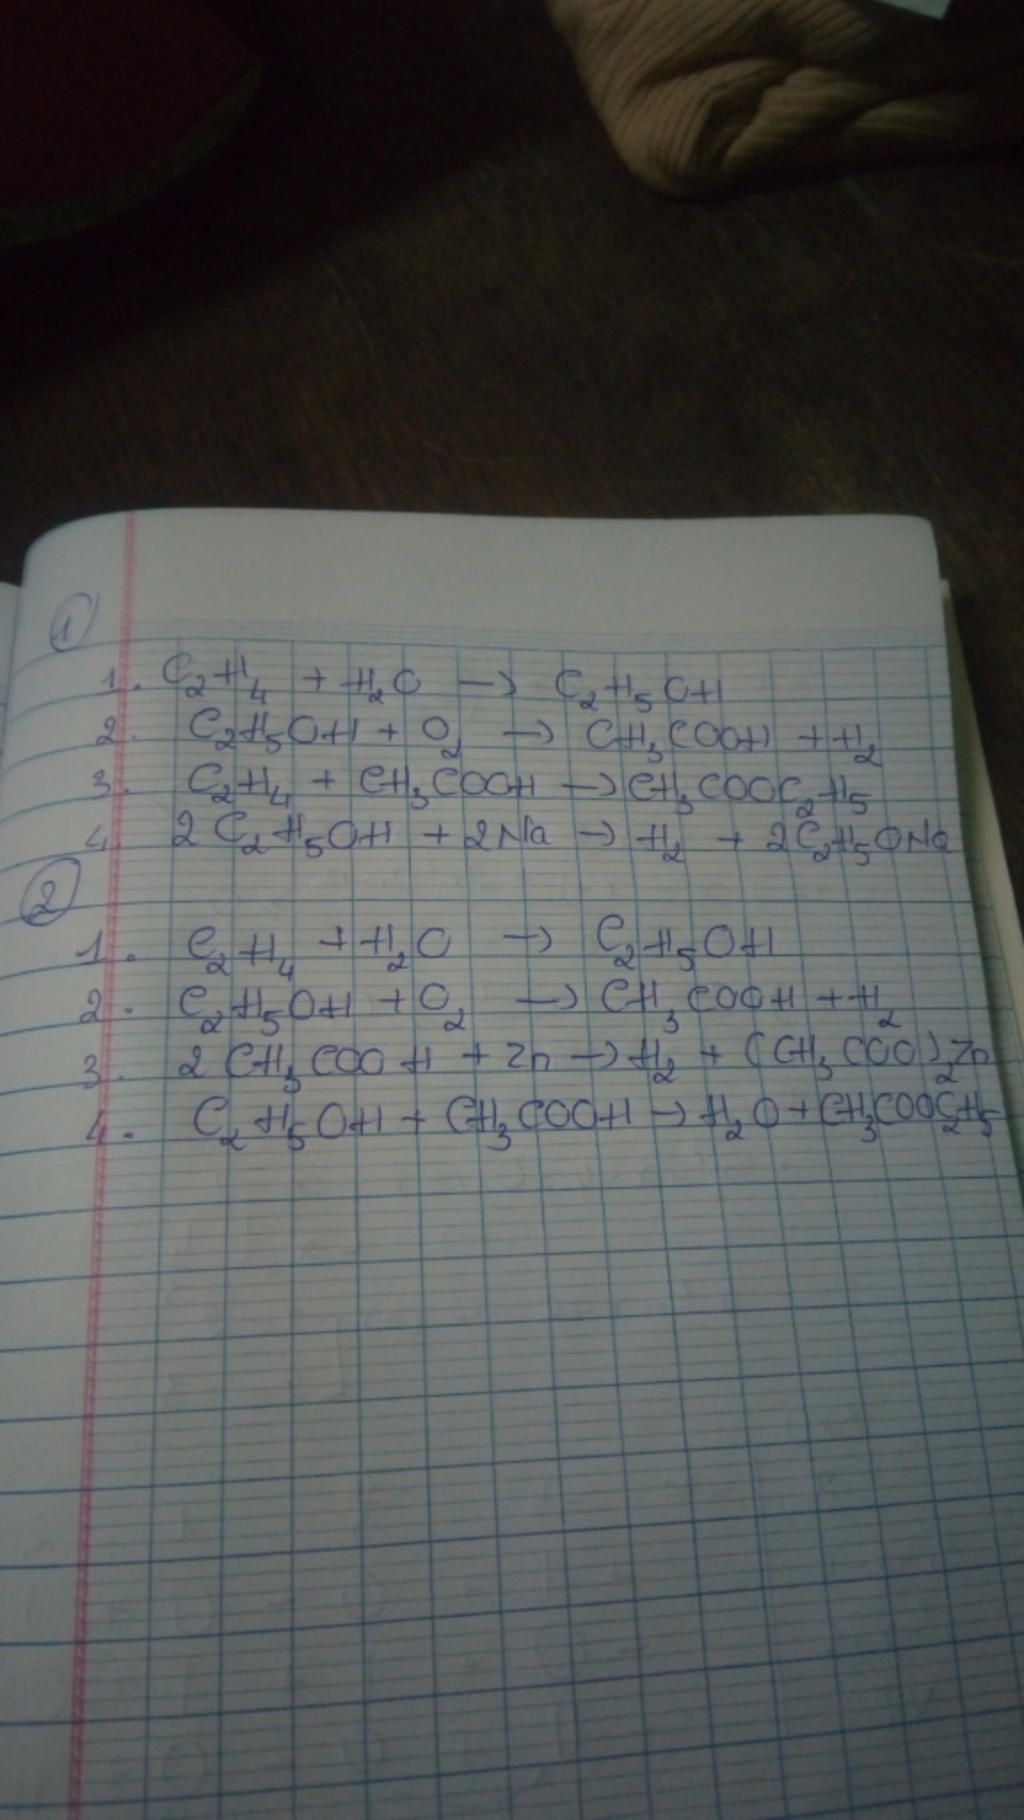 1
1. C₂H₄ + H₂O → C₂H₅OH
2. C₂H₅OH + O₂ → CH₃COOH + H₂
3. C₂H₄ + CH₃COOH → CH₃COOC₂H₅
4. 2C₂H₅OH + 2Na → H₂ + 2C₂H₅ONa
2
1. C₂H₄ + H₂O → C₂H₅OH
2. C₂H₅OH + O₂ → CH₃COOH + H₂
3. 2CH₃COOH + Zn → H₂ + (CH₃COO)₂Zn
4. C₂H₅OH + CH₃COOH → H₂O + CH₃COOC₂H₅